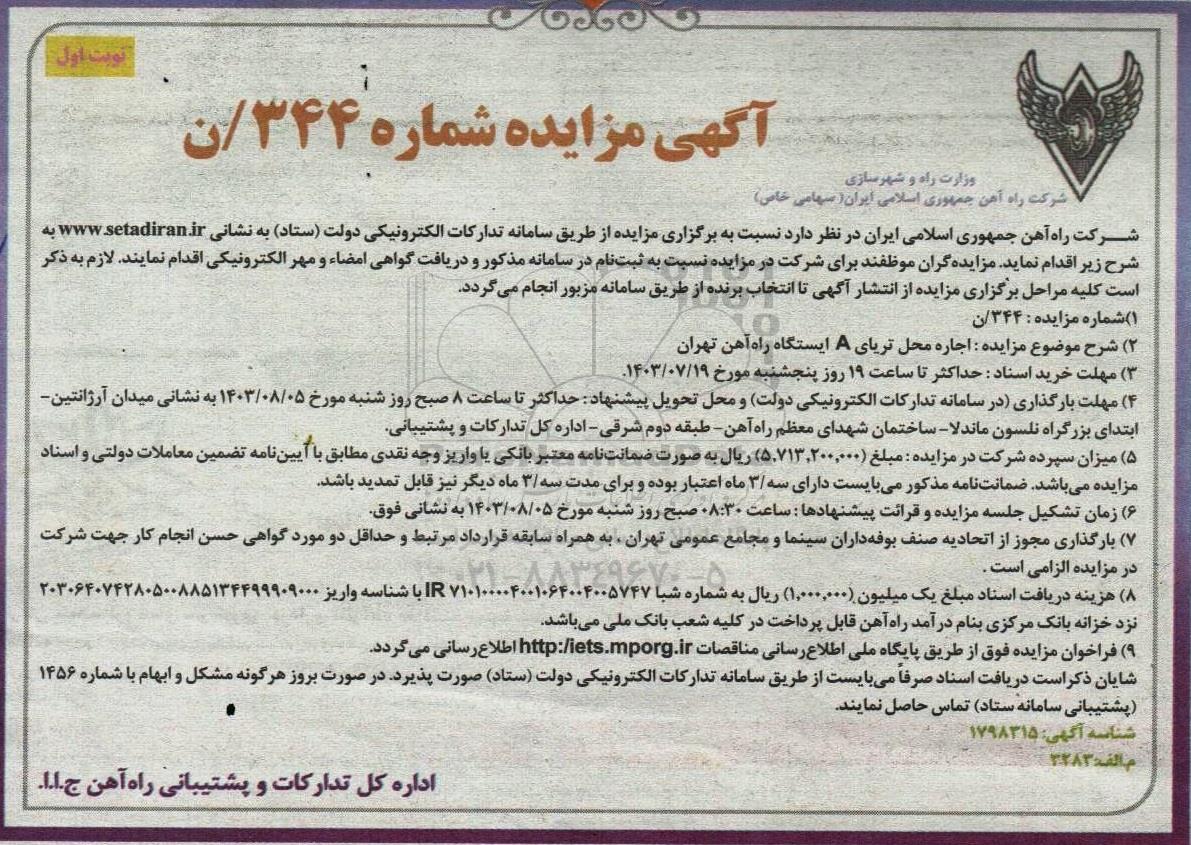 نوبت اول
آگهی مزایده شماره ۳۴۴/ن
وزارت راه و شهرسازی
شرکت راه آهن جمهوری اسلامی ایران( سهامی خاص)
شـــرکت راه‌آهن جمهوری اسلامی ایران در نظر دارد نسبت به برگزاری مزایده از طریق سامانه تدارکات الکترونیکی دولت (ستاد) به نشانی www.setadiran.ir به
شرح زیر اقدام نماید. مزایده‌گران موظفند برای شرکت در مزایده نسبت به ثبت‌نام در سامانه مذکور و دریافت گواهی امضاء و مهر الکترونیکی اقدام نمایند. لازم به ذکر
است کلیه مراحل برگزاری مزایده از انتشار آگهی تا انتخاب برنده از طریق سامانه مزبور انجام می‌گردد.
۱)شماره مزایده : ۳۴۴/ن
۲) شرح موضوع مزایده : اجاره محل تریای A ایستگاه راه‌آهن تهران
۳) مهلت خرید اسناد : حداکثر تا ساعت ۱۹ روز پنجشنبه مورخ ۱۴۰۳/۰۷/۱۹.
۴) مهلت بارگذاری (در سامانه تدارکات الکترونیکی دولت) و محل تحویل پیشنهاد : حداکثر تا ساعت ۸ صبح روز شنبه مورخ ۱۴۰۳/۰۸/۰۵ به نشانی میدان آرژانتین-
ابتدای بزرگراه نلسون ماندلا- ساختمان شهدای معظم راه‌آهن- طبقه دوم شرقی- اداره کل تدارکات و پشتیبانی.
۵) میزان سپرده شرکت در مزایده : مبلغ (۵,۷۱۳,۲۰۰,۰۰۰) ریال به صورت ضمانت‌نامه معتبر بانکی یا واریز وجه نقدی مطابق با آیین‌نامه تضمین معاملات دولتی و اسناد
مزایده می‌باشد. ضمانت‌نامه مذکور می‌بایست دارای سه/۳ ماه اعتبار بوده و برای مدت سه/۳ ماه دیگر نیز قابل تمدید باشد.
۶) زمان تشکیل جلسه مزایده و قرائت پیشنهادها : ساعت ۰۸:۳۰ صبح روز شنبه مورخ ۱۴۰۳/۰۸/۰۵ به نشانی فوق.
۷) بارگذاری مجوز از اتحادیه صنف بوفه‌داران سینما و مجامع عمومی تهران ، به همراه سابقه قرارداد مرتبط و حداقل دو مورد گواهی حسن انجام کار جهت شرکت
در مزایده الزامی است .
۸) هزینه دریافت اسناد مبلغ یک میلیون (۱,۰۰۰,۰۰۰) ریال به شماره شبا IR ۷۱۰۱۰۰۰۰۴۰۰۱۰۶۴۰۰۴۰۰۵۷۴۷ با شناسه واریز ۲۰۳۰۶۴۰۷۴۲۸۰۵۰۰۸۸۵۱۳۴۴۹۹۹۰۹۰۰۰
نزد خزانه بانک مرکزی بنام درآمد راه‌آهن قابل پرداخت در کلیه شعب بانک ملی می‌باشد.
۹) فراخوان مزایده فوق از طریق پایگاه ملی اطلاع‌رسانی مناقصات http:/iets.mporg.ir اطلاع‌رسانی می‌گردد.
شایان ذکراست دریافت اسناد صرفاً می‌بایست از طریق سامانه تدارکات الکترونیکی دولت (ستاد) صورت پذیرد. در صورت بروز هرگونه مشکل و ابهام با شماره ۱۴۵۶
(پشتیبانی سامانه ستاد) تماس حاصل نمایند.
شناسه آگهی: ۱۷۹۸۳۱۵
م.الف:۳۲۸۳
اداره کل تدارکات و پشتیبانی راه‌آهن ج.ا.ا.
۰۲۱-۸۸۳۴۹۶۷۰-۵